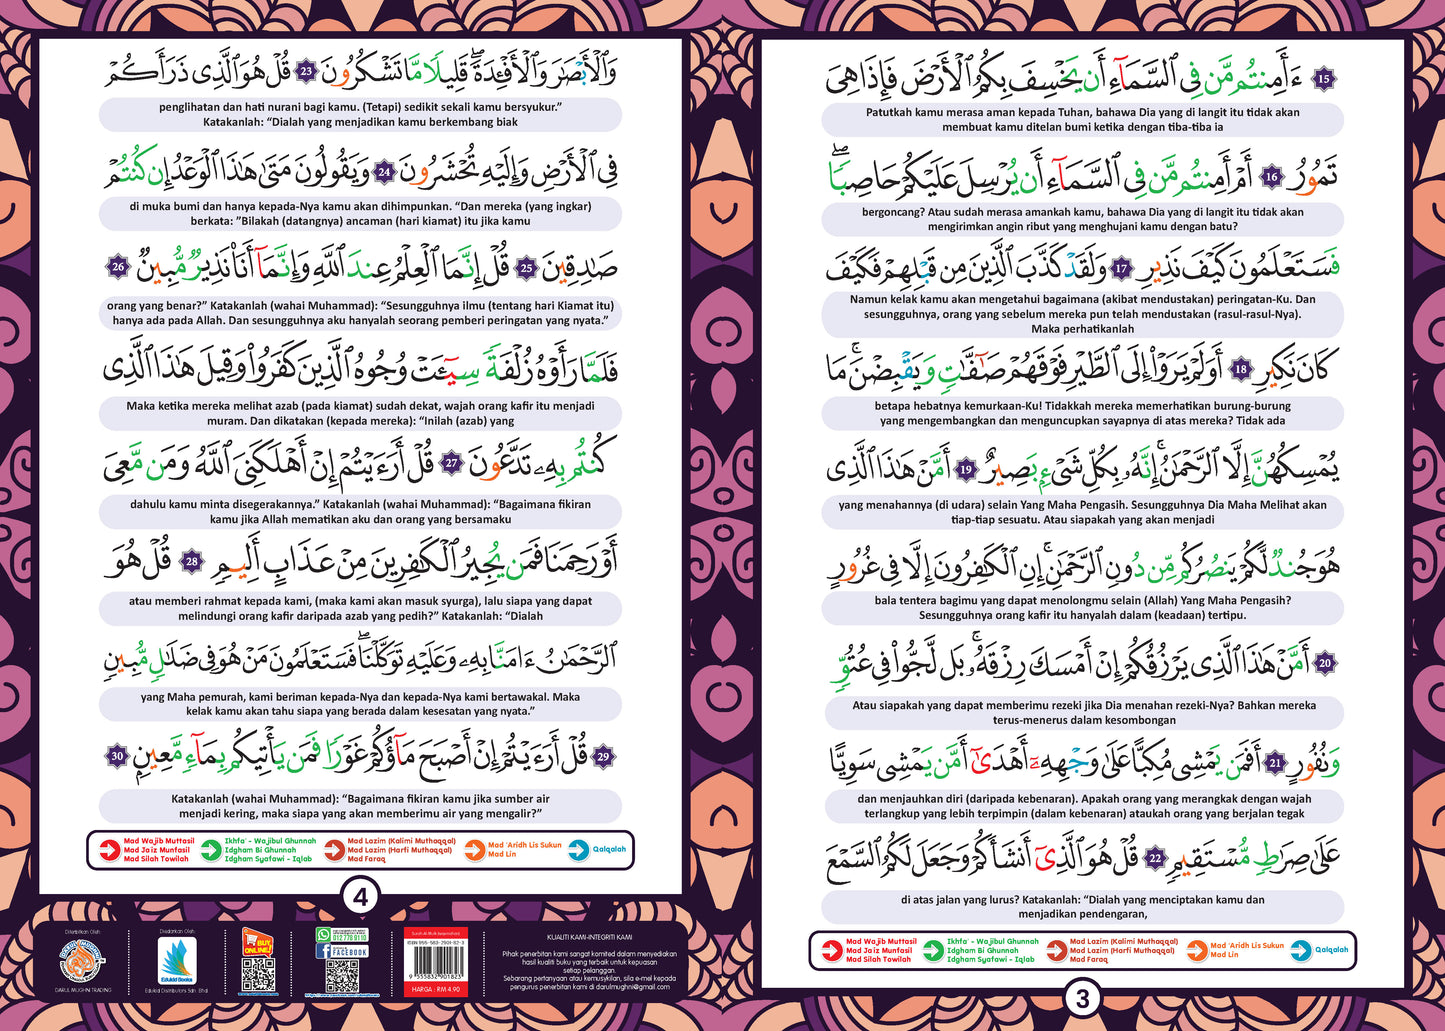 15 ءَأَمِنتُم مَّن فِي ٱلسَّمَآءِ أَن يَخْسِفَ بِكُمُ ٱلْأَرْضَ فَإِذَا هِىَ
Patutkah kamu merasa aman kepada Tuhan, bahawa Dia yang di langit itu tidak akan
membuat kamu ditelan bumi ketika dengan tiba-tiba ia
تَمُورُ 16 أَمْ أَمِنتُم مَّن فِي ٱلسَّمَآءِ أَن يُرْسِلَ عَلَيْكُمْ حَاصِبًا ۖ
bergoncang? Atau sudah merasa amankah kamu, bahawa Dia yang di langit itu tidak akan
mengirimkan angin ribut yang menghujani kamu dengan batu?
فَسَتَعْلَمُونَ كَيْفَ نَذِيرِ 17 وَلَقَدْ كَذَّبَ ٱلَّذِينَ مِن قَبْلِهِمْ فَكَيْفَ
Namun kelak kamu akan mengetahui bagaimana (akibat mendustakan) peringatan-Ku. Dan
sesungguhnya, orang yang sebelum mereka pun telah mendustakan (rasul-rasul-Nya).
Maka perhatikanlah
كَانَ نَكِيرِ 18 أَوَلَمْ يَرَوْا۟ إِلَى ٱلطَّيْرِ فَوْقَهُمْ صَـٰٓفَّـٰتٍ وَيَقْبِضْنَ ۚ مَا
betapa hebatnya kemurkaan-Ku! Tidakkah mereka memerhatikan burung-burung
yang mengembangkan dan menguncupkan sayapnya di atas mereka? Tidak ada
يُمْسِكُهُنَّ إِلَّا ٱلرَّحْمَـٰنُ ۚ إِنَّهُۥ بِكُلِّ شَىْءٍۭ بَصِيرٌ 19 أَمَّنْ هَـٰذَا ٱلَّذِى
yang menahannya (di udara) selain Yang Maha Pengasih. Sesungguhnya Dia Maha Melihat akan
tiap-tiap sesuatu. Atau siapakah yang akan menjadi
هُوَ جُندٌ لَّكُمْ يَنصُرُكُم مِّن دُونِ ٱلرَّحْمَـٰنِ ۚ إِنِ ٱلْكَـٰفِرُونَ إِلَّا فِى غُرُورٍ
bala tentera bagimu yang dapat menolongmu selain (Allah) Yang Maha Pengasih?
Sesungguhnya orang kafir itu hanyalah dalam (keadaan) tertipu.
20 أَمَّنْ هَـٰذَا ٱلَّذِى يَرْزُقُكُمْ إِنْ أَمْسَكَ رِزْقَهُۥ ۚ بَل لَّجُّوا۟ فِى عُتُوٍّ
Atau siapakah yang dapat memberimu rezeki jika Dia menahan rezeki-Nya? Bahkan mereka
terus-menerus dalam kesombongan
وَنُفُورٍ 21 أَفَمَن يَمْشِى مُكِبًّا عَلَىٰ وَجْهِهِۦٓ أَهْدَىٰٓ أَمَّن يَمْشِى سَوِيًّا
dan menjauhkan diri (daripada kebenaran). Apakah orang yang merangkak dengan wajah
terlangkup yang lebih terpimpin (dalam kebenaran) ataukah orang yang berjalan tegak
عَلَىٰ صِرَٰطٍ مُّسْتَقِيمٍ 22 قُلْ هُوَ ٱلَّذِىٓ أَنشَأَكُمْ وَجَعَلَ لَكُمُ ٱلسَّمْعَ
di atas jalan yang lurus? Katakanlah: “Dialah yang menciptakan kamu dan
menjadikan pendengaran,
Mad Wajib Muttasil
Mad Ja'iz Munfasil
Mad Silah Towilah
Ikhfa' - Wajibul Ghunnah
Idgham Bi Ghunnah
Idgham Syafawi - Iqlab
Mad Lazim (Kalimi Muthaqqal)
Mad Lazim (Harfi Muthaqqal)
Mad Faraq
Mad 'Aridh Lis Sukun
Mad Lin
Qalqalah
3
وَٱلْأَبْصَـٰرَ وَٱلْأَفْـِٔدَةَ ۖ قَلِيلًا مَّا تَشْكُرُونَ 23 قُلْ هُوَ ٱلَّذِى ذَرَأَكُمْ
penglihatan dan hati nurani bagi kamu. (Tetapi) sedikit sekali kamu bersyukur.”
Katakanlah: “Dialah yang menjadikan kamu berkembang biak
فِى ٱلْأَرْضِ وَإِلَيْهِ تُحْشَرُونَ 24 وَيَقُولُونَ مَتَىٰ هَـٰذَا ٱلْوَعْدُ إِن كُنتُمْ
di muka bumi dan hanya kepada-Nya kamu akan dihimpunkan. “Dan mereka (yang ingkar)
berkata: ”Bilakah (datangnya) ancaman (hari kiamat) itu jika kamu
صَـٰدِقِينَ 25 قُلْ إِنَّمَا ٱلْعِلْمُ عِندَ ٱللَّهِ وَإِنَّمَآ أَنَا۠ نَذِيرٌ مُّبِينٌ 26
orang yang benar?” Katakanlah (wahai Muhammad): “Sesungguhnya ilmu (tentang hari Kiamat itu)
hanya ada pada Allah. Dan sesungguhnya aku hanyalah seorang pemberi peringatan yang nyata.”
فَلَمَّا رَأَوْهُ زُلْفَةً سِيٓـَٔتْ وُجُوهُ ٱلَّذِينَ كَفَرُوا۟ وَقِيلَ هَـٰذَا ٱلَّذِى
Maka ketika mereka melihat azab (pada kiamat) sudah dekat, wajah orang kafir itu menjadi
muram. Dan dikatakan (kepada mereka): “Inilah (azab) yang
كُنتُم بِهِۦ تَدَّعُونَ 27 قُلْ أَرَءَيْتُمْ إِنْ أَهْلَكَنِىَ ٱللَّهُ وَمَن مَّعِىَ
dahulu kamu minta disegerakannya.” Katakanlah (wahai Muhammad): “Bagaimana fikiran
kamu jika Allah mematikan aku dan orang yang bersamaku
أَوْ رَحِمَنَا فَمَن يُجِيرُ ٱلْكَـٰفِرِينَ مِنْ عَذَابٍ أَلِيمٍ 28 قُلْ هُوَ
atau memberi rahmat kepada kami, (maka kami akan masuk syurga), lalu siapa yang dapat
melindungi orang kafir daripada azab yang pedih?” Katakanlah: “Dialah
ٱلرَّحْمَـٰنُ ءَامَنَّا بِهِۦ وَعَلَيْهِ تَوَكَّلْنَا ۖ فَسَتَعْلَمُونَ مَنْ هُوَ فِى ضَلَـٰلٍ مُّبِينٍ
yang Maha pemurah, kami beriman kepada-Nya dan kepada-Nya kami bertawakal. Maka
kelak kamu akan tahu siapa yang berada dalam kesesatan yang nyata.”
29 قُلْ أَرَءَيْتُمْ إِنْ أَصْبَحَ مَآؤُكُمْ غَوْرًا فَمَن يَأْتِيكُم بِمَآءٍ مَّعِينٍ 30
Katakanlah (wahai Muhammad): “Bagaimana fikiran kamu jika sumber air
menjadi kering, maka siapa yang akan memberimu air yang mengalir?”
Mad Wajib Muttasil
Mad Ja'iz Munfasil
Mad Silah Towilah
Ikhfa' - Wajibul Ghunnah
Idgham Bi Ghunnah
Idgham Syafawi - Iqlab
Mad Lazim (Kalimi Muthaqqal)
Mad Lazim (Harfi Muthaqqal)
Mad Faraq
Mad 'Aridh Lis Sukun
Mad Lin
Qalqalah
4
Diterbitkan Oleh:
DARUL MUGHNI TRADING
Diedarkan Oleh:
Edukid Books
Edukid Distributors Sdn. Bhd.
BUY
ONLINE!
012 778 9110
FACEBOOK
ISBN 955-583-2901-82-3
9 555832 901823
HARGA : RM 4.90
KUALITI KAMI-INTEGRITI KAMI
Pihak penerbitan kami sangat komited dalam menyediakan
hasil kualiti buku yang terbaik untuk kepuasan
setiap pelanggan.
Sebarang pertanyaan atau kemusykilan, sila e-mel kepada
pengurus penerbitan kami di darulmughni@gmail.com